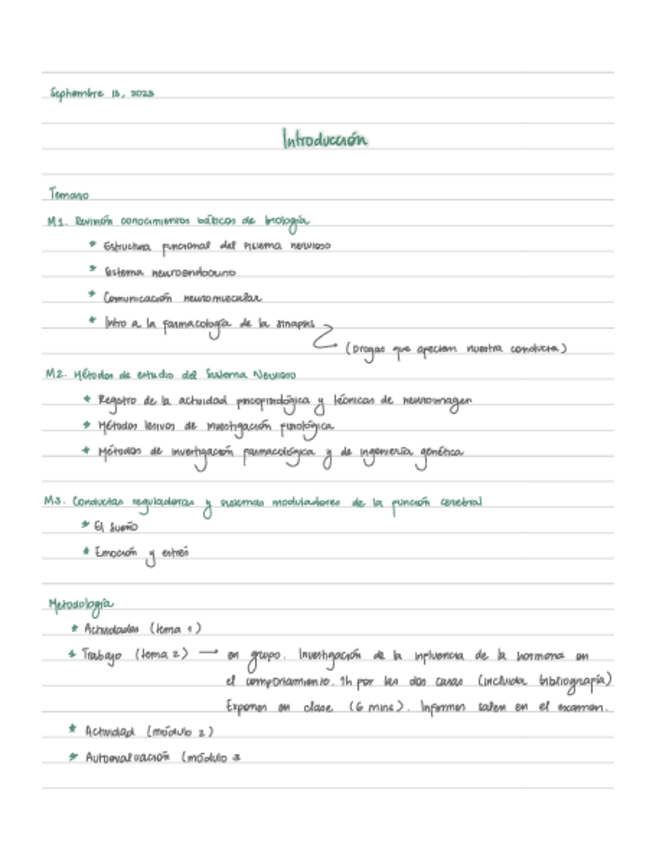 Septiembre 13, 2023
Introducción
Temario
M1. Revisión conocimientos básicos de biología
* Estructura funcional del sistema nervioso
* Sistema neuroendocrino
* Comunicación neuromuscular
* Intro a la farmacología de la sinapsis
(Drogas que afectan nuestra conducta)
M2. Métodos de estudio del Sistema Nervioso
* Registro de la actividad psicofisiológica y técnicas de neuroimagen
* Métodos lesivos de investigación fisiológica
* Métodos de investigación farmacológica y de ingeniería genética
M3. Conductas reguladoras y sistemas moduladores de la función cerebral
* El sueño
* Emoción y estrés
Metodología
* Actividades (tema 1)
* Trabajo (tema 2) → en grupo. Investigación de la influencia de la hormona en
el comportamiento. 1h por las dos caras (incluida bibliografía)
Exponer en clase (6 mins). Informes salen en el examen.
* Actividad (módulo 2)
* Autoevaluación (módulo 3